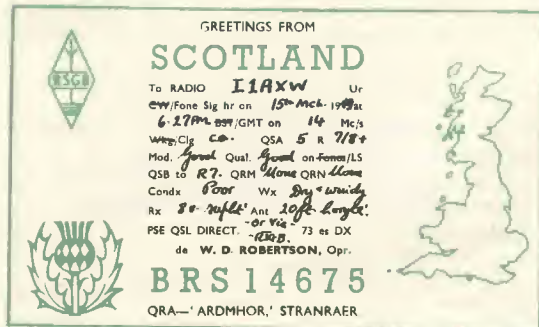 GREETINGS FROM
RSGB
SCOTLAND
To RADIO I1AXW Ur
CW/Fone Sig hr on 15th Mch. 19 at
6.27PM BST/GMT on 14 Mc/s
Wkg/Clg CQ. QSA 5 R 7/8+
Mod. Good Qual. Good on Fones/LS
QSB to R7. QRM None QRN None
Condx Poor Wx Dry & windy
Rx Ant 20ft
PSE QSL DIRECT. - or via - RSGB. 73 es DX
de W. D. ROBERTSON, Opr.
BRS 14675
QRA—'ARDMHOR,' STRANRAER